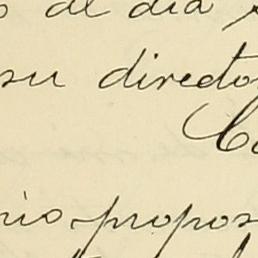 o al dia
su director
Co
rio propos